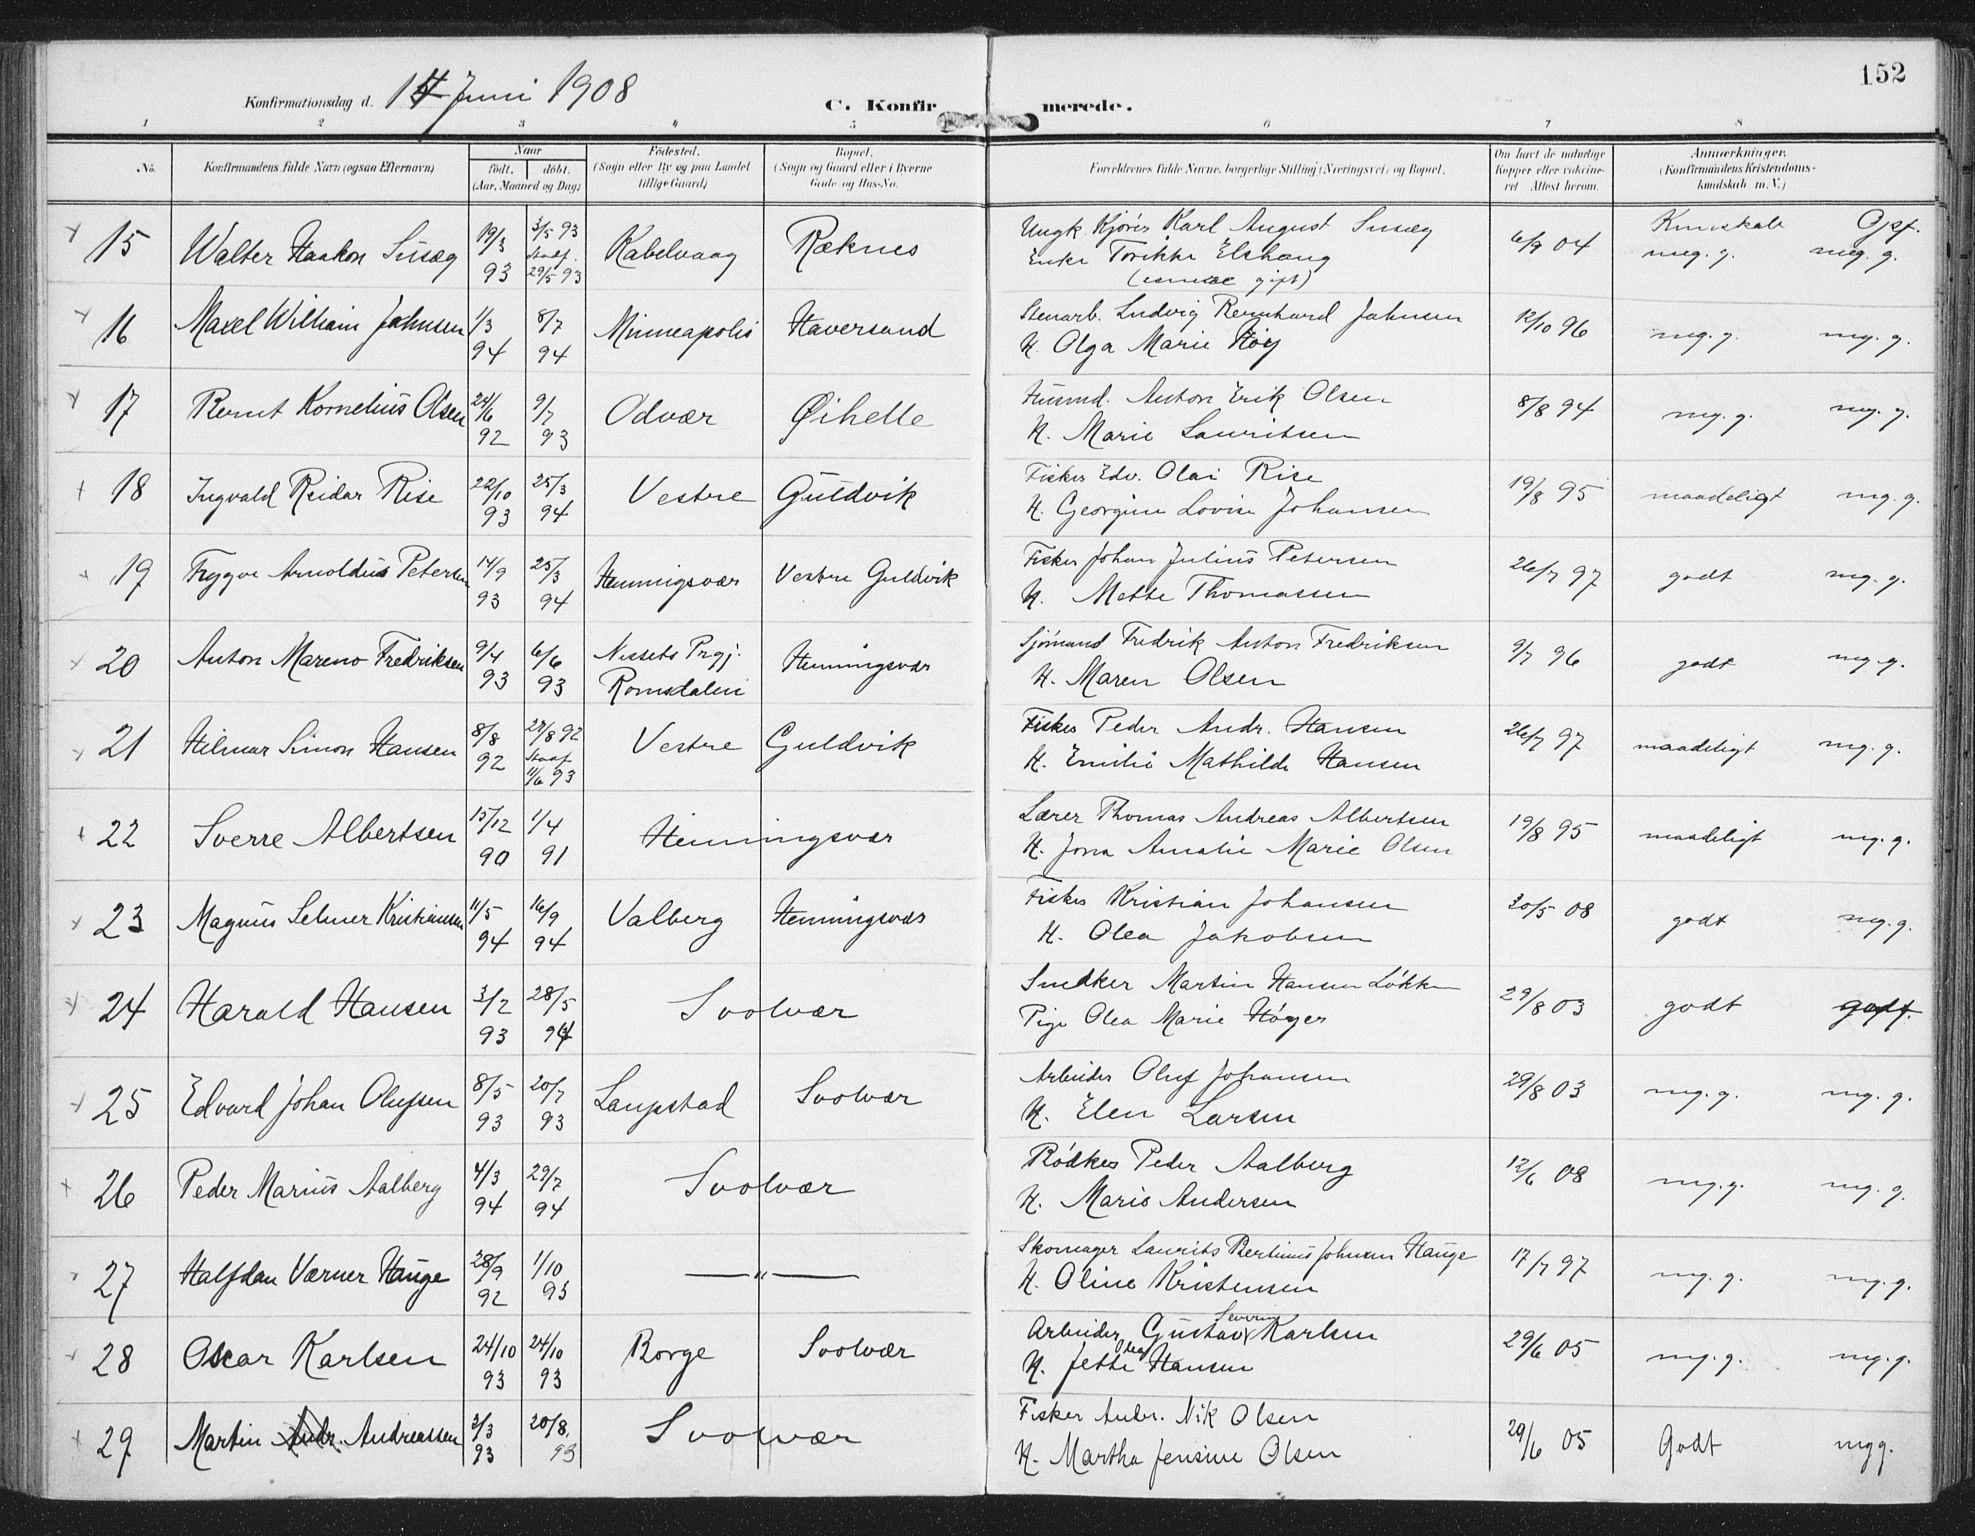 152
Konfirmationsdag d. 14 Juni 1908
C. Konfirmerede.
1 2 3 4 5 6 7 8
No. Konfirmandens fulde Navn (ogsaa Efternavn) Naar født. døbt. (Aar, Maaned og Dag) Fødested. (Sogn eller By og paa Landet tillige Gaard) Bopæl. (Sogn og Gaard eller i Byerne Gade og Hus-No.) Forældrenes fulde Navne, borgerlige Stilling (Næringsvei) og Bopæl. Om havt de naturlige Kopper eller vaccineret. Attest herom. Anmærkninger. (Konfirmandens Kristendomskundskab m. V.)
15 Walter Haakon 19/3 93 3/5 93 Stadf. 29/5 93 Kabelvaag Ræknes Ungk. Karl August 6/9 04 Kunskab meg. g. Opf. meg. g.
Enke Elshaug
gift)
16 Maxel William Johnsen 1/3 94 8/7 94 Minneapolis Haversand Stenarb. Ludvig Bernhard Johnsen 12/10 96 mg. g. mg. g.
H. Olga Marie Høy
17 Bernt Kornelius Olsen 24/6 92 9/7 93 Odvær Øihelle Husmd. Anton Erik Olsen 8/8 94 mg. g. mg. g.
H. Marie Lauritsen
18 Ingvald Reidar Rise 22/10 93 25/3 94 Vestre Guldvik Fisker Edv. Olai Rise 19/8 95 maadeligt mg. g.
H. Georgine Lovise Johansen
19 Trygve Arnoldus Petersen 14/9 93 25/3 94 Henningsvær Vestre Guldvik Fisker Johan Julius Petersen 26/7 97 godt mg. g.
H. Mette Thomassen
20 Anton Mareno Fredriksen 9/4 93 6/6 93 Nessets Prgj. Romsdalen Henningsvær Sjømand Fredrik Anton Fredriksen 9/7 96 godt mg. g.
H. Maren Olsen
21 Hilmar Simon Hansen 8/8 92 28/8 92 Stadf 11/6 93 Vestre Guldvik Fisker Peder Andr. Hansen 26/7 97 maadeligt mg. g.
H. Emilie Mathilde Hansen
22 Sverre Albertsen 15/12 90 1/4 91 Henningsvær Lærer Thomas Andreas Albertsen 19/8 95 maadeligt mg. g.
H. Jona Amalie Marie Olsen
23 Magnus Selmer Kristiansen 11/5 94 16/9 94 Valberg Henningsvær Fisker Kristian Johansen 30/5 08 godt mg. g.
H. Olea Jakobsen
24 Harald Hansen 3/2 93 28/5 94 Svolvær Snedker Martin Hansen Løkken 29/8 03 godt godt.
Pige Olea Marie Høyer
25 Edvard Johan Olufsen 8/5 93 20/7 93 Laupstad Svolvær Arbeider Oluf Johansen 29/8 03 mg. g. mg. g.
H. Elen Larsen
26 Peder Marius Aalberg 4/3 94 29/7 94 Svolvær Rødker Peder Aalberg 12/6 08 mg. g. mg. g.
H. Marie Andersen
27 Halfdan Værner Hauge 28/9 92 1/10 93 — " — Skomager Laurits Bertinus Johnsen Hauge 17/7 97 mg. g. mg. g.
H. Oline Kristensen
28 Oscar Karlsen 24/10 93 24/10 93 Borge Svolvær Arbeider Gustav Severin Karlsen 29/6 05 mg. g. mg. g.
H. Jette Olea Hansen
29 Martin Andr. Andreassen 3/3 93 20/8 93 Svolvær Fisker Andr. Nik Olsen 29/6 05 Godt mgg.
H. Martha Jensine Olsen